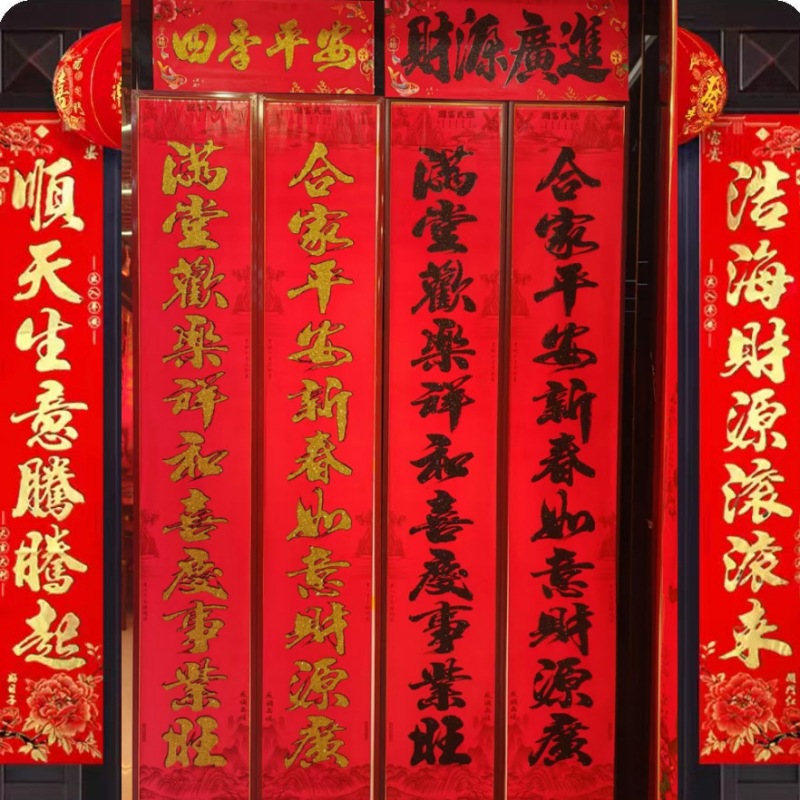 四季平安
財源廣進
順天生意騰騰起
满堂歡樂祥和喜慶事業旺
合家平安新春如意財源廣
满堂歡樂祥和喜慶事業旺
合家平安新春如意財源廣
浩海財源滚滚来
國富民强
國富民强